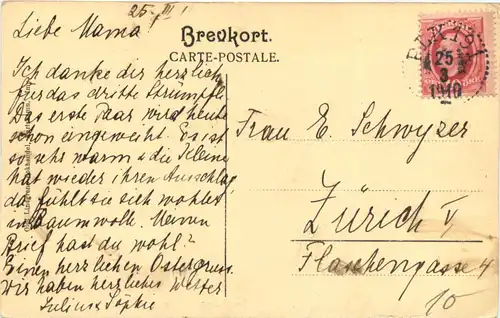 25./III.
Liebe Mama!
Ich danke dir herzlich
für das dritte Strümpfli
Das erste Paar wird heute
schon eingeweiht. Es ist
so sehr warm & die Kleine
hat wieder ihren Ausschlag
da fühlt sie sich wohler
in Baumwolle. Meinen
Brief hast du wohl?
Einen herzlichen Ostergruss.
Wir haben herrliches Wetter
Julius & Sophie
Brevkort.
CARTE-POSTALE.
25
3
1910
Frau E. Schwyzer
Zürich V
Flauhengasse 4
10